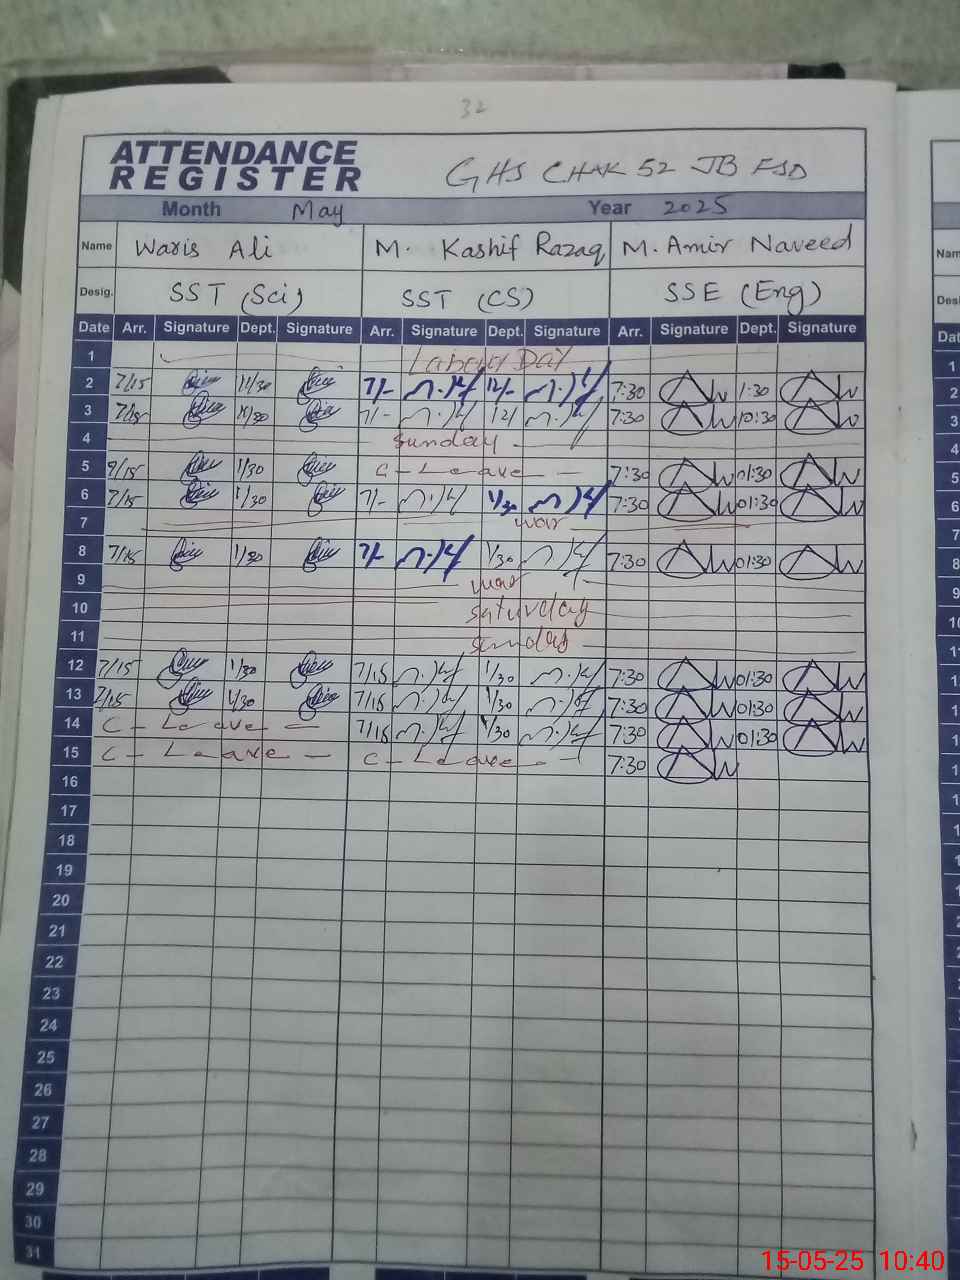 32
ATTENDANCE
REGISTER
GHS CHAK 52 JB FSD
Month May Year 2025
Name Waris Ali M. Kashif Razaq M. Amir Naveed
Desig. SST (Sci) SST (CS) SSE (Eng)
Date Arr. Signature Dept. Signature Arr. Signature Dept. Signature Arr. Signature Dept. Signature
1 Labour Day
2 7/15 11/30 7/- 12/- 7:30 1:30
3 7/15 7/- 12/ 7:30 10:30
4 Sunday
5 9/15 1/30 C - Leave - 7:30 01:30
6 7/15 1/30 7/- 1/30 7:30 01:30
7 war
8 7/15 1/30 7/- 1/30 7:30 01:30
9 war
10 Saturday
11 Sunday
12 7/15 1/30 7/15 1/30 7:30 01:30
13 7/15 1/30 7/15 1/30 7:30 01:30
14 C - Leave - 7/15 1/30 7:30 01:30
15 C - Leave - C - Leave - 7:30
16
17
18
19
20
21
22
23
24
25
26
27
28
29
30
31
Nam
Desi
Dat
1
2
3
4
5
6
7
8
9
10
15-05-25 10:40